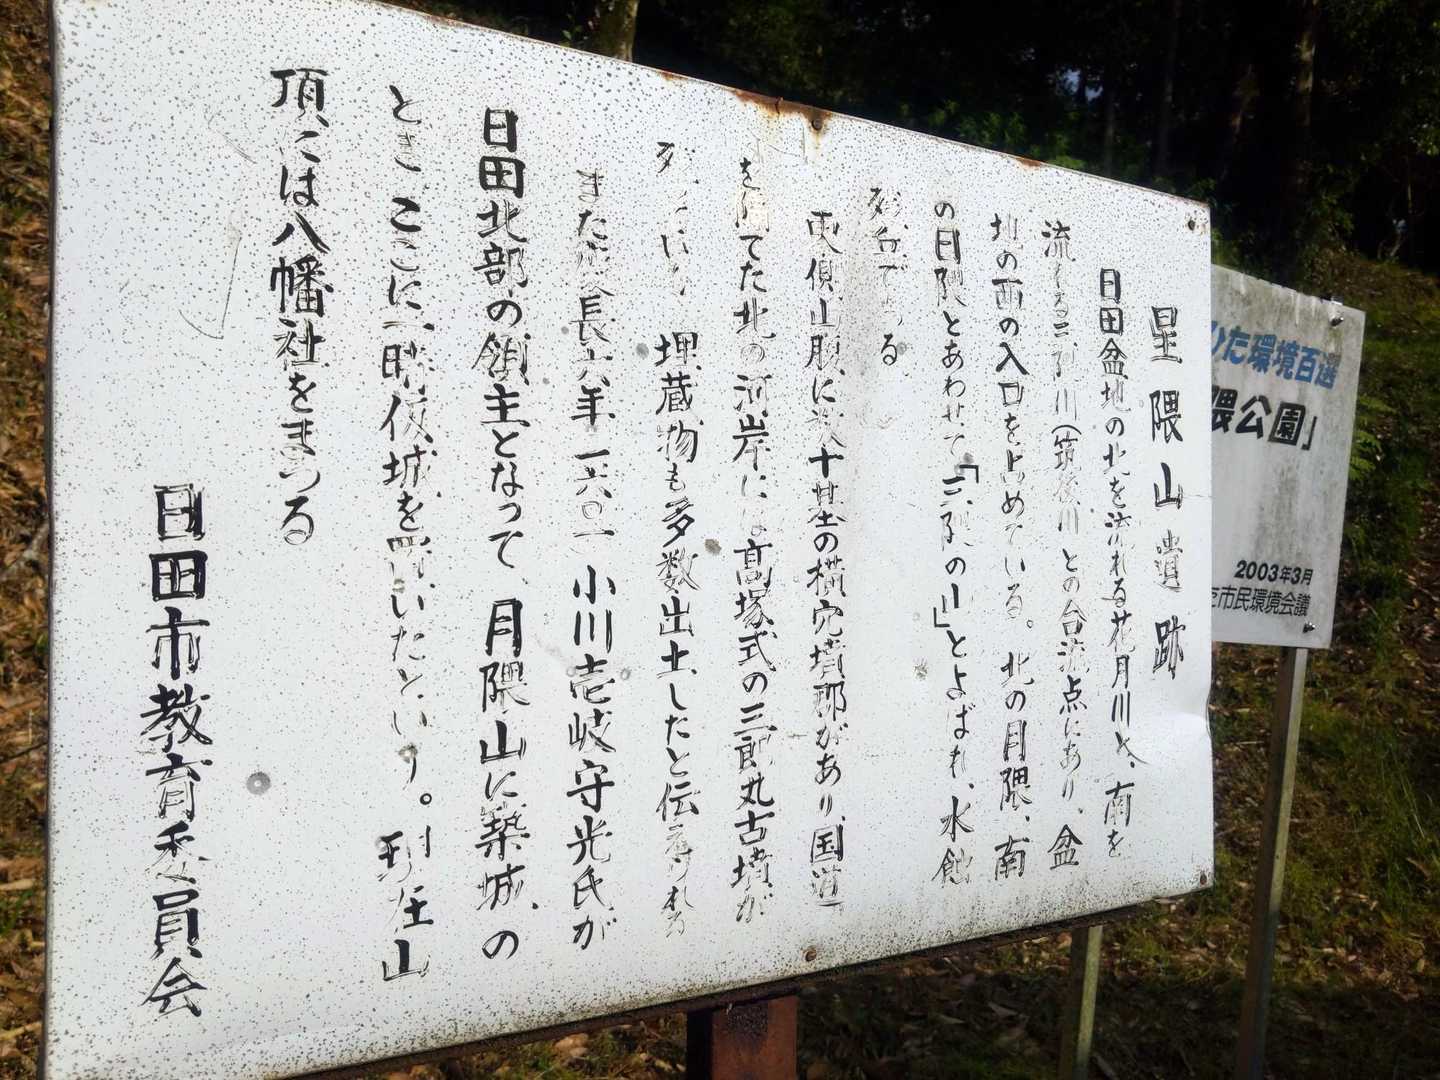 星隈山遺跡
日田盆地の北を流れる花月川と、南を
流れる三隈川(筑後川)との合流点にあり、盆
地の西の入口を占めている。北の月隈、南
の日隈とあわせて「三隈の山」とよばれ、水蝕
残丘である
東側山腹に数十基の横穴墳郡があり、国道
をてた北の河岸には高塚式の三郎丸古墳が
残っている 埋蔵物も多数出土したと伝えられる
また慶長六年(一六〇一)小川壱岐守光氏が
日田北部の領主となって月隈山に築城の
ときここに一時仮城を置いたという。現在山
頂には八幡社をまつる
日田市教育委員会
ひた環境百選
隈公園」
2003年3月
市民環境会議